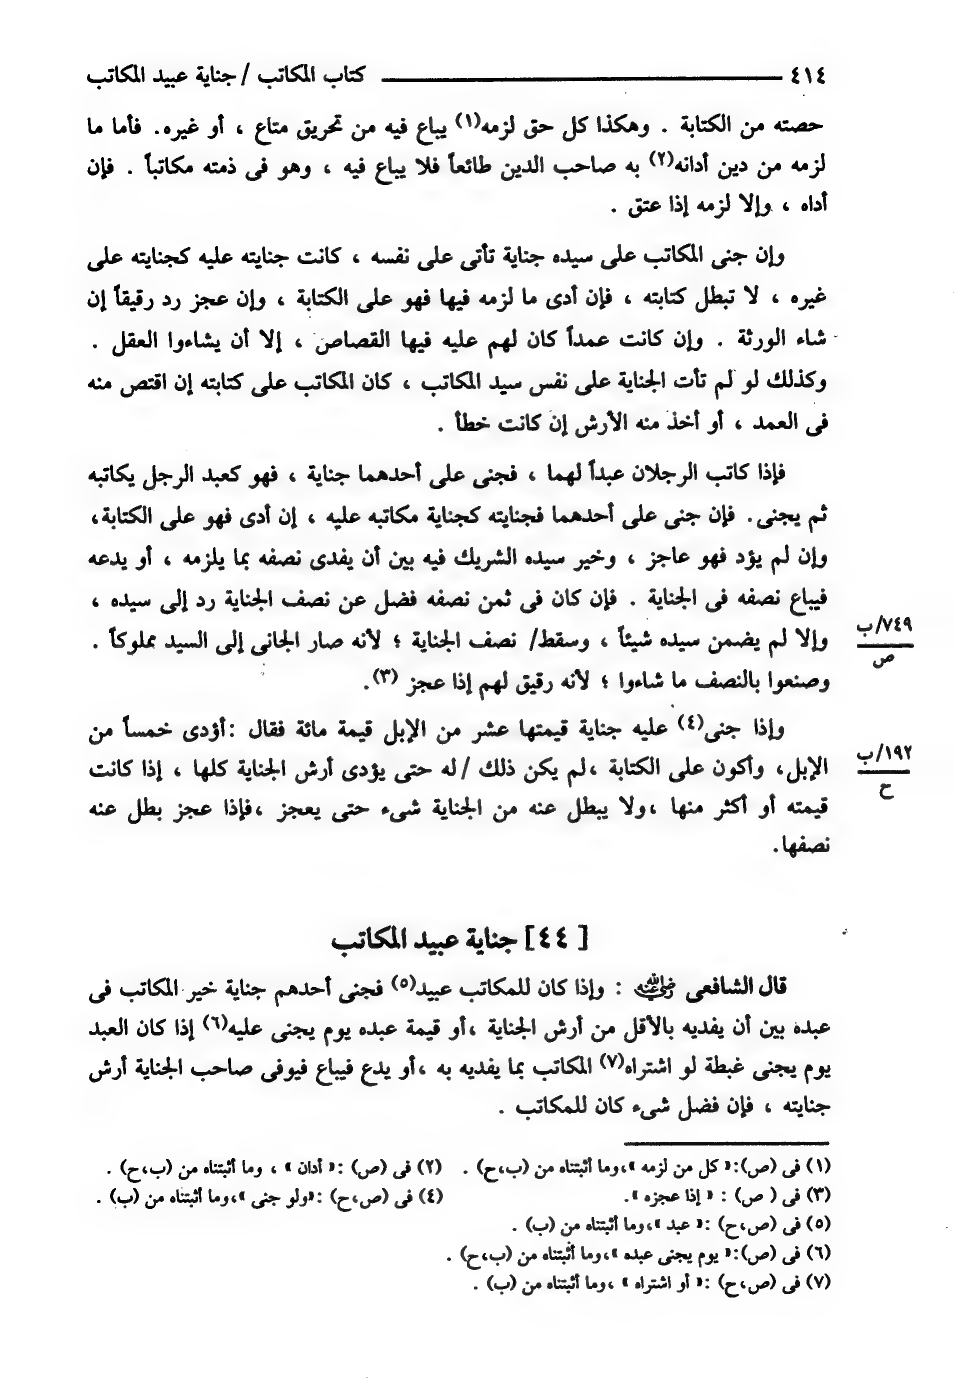 ٤١٤ كتاب المكاتب / جناية عبيد المكاتب
حصته من الكتابة . وهكذا كل حق لزمه(١) يباع فيه من تحريق متاع ، أو غيره. فأما ما
لزمه من دين أدانه(٢) به صاحب الدين طائعاً فلا يباع فيه ، وهو فى ذمته مكاتباً . فإن
أداه ، وإلا لزمه إذا عتق .
وإن جنى المكاتب على سيده جناية تأتى على نفسه ، كانت جنايته عليه كجنايته على
غيره ، لا تبطل كتابته ، فإن أدى ما لزمه فيها فهو على الكتابة ، وإن عجز رد رقيقاً إن
شاء الورثة . وإن كانت عمداً كان لهم عليه فيها القصاص ، إلا أن يشاءوا العقل .
وكذلك لو لم تأت الجناية على نفس سيد المكاتب ، كان المكاتب على كتابته إن اقتص منه
فى العمد ، أو أخذ منه الأرش إن كانت خطأ .
فإذا كاتب الرجلان عبداً لهما ، فجنى على أحدهما جناية ، فهو كعبد الرجل يكاتبه
ثم يجنى. فإن جنى على أحدهما فجنايته كجناية مكاتبه عليه ، إن أدى فهو على الكتابة،
وإن لم يؤد فهو عاجز ، وخير سيده الشريك فيه بين أن يفدى نصفه بما يلزمه ، أو يدعه
فيباع نصفه فى الجناية . فإن كان فى ثمن نصفه فضل عن نصف الجناية رد إلى سيده ،
٧٤٩/ب
ص
وإلا لم يضمن سيده شيئاً ، وسقط/ نصف الجناية ؛ لأنه صار الجانى إلى السيد مملوكاً .
وصنعوا بالنصف ما شاءوا ؛ لأنه رقيق لهم إذا عجز (٣).
وإذا جنى(٤) عليه جناية قيمتها عشر من الإبل قيمة مائة فقال :أؤدى خمساً من
١٩٢/ب
ح
الإبل، وأكون على الكتابة ،لم يكن ذلك /له حتى يؤدى أرش الجناية كلها ، إذا كانت
قيمته أو أكثر منها ،ولا يبطل عنه من الجناية شىء حتى يعجز ،فإذا عجز بطل عنه
نصفها.
[ ٤٤] جناية عبيد المكاتب
قال الشافعى رضي الله عنه : وإذا كان للمكاتب عبيد(٥) فجنى أحدهم جناية خير المكاتب فى
عبده بين أن يفديه بالأقل من أرش الجناية ،أو قيمة عبده يوم يجنى عليه(٦) إذا كان العبد
يوم يجنى غبطة لو اشتراه(٧) المكاتب بما يفديه به ،أو يدع فيباع فيوفى صاحب الجناية أرش
جنايته ، فإن فضل شىء كان للمكاتب .
(١) فى (ص):« كل من لزمه »،وما أثبتناه من (ب،ح) . (٢) فى (ص) :« أدان » ، وما أثبتناه من (ب،ح) .
(٣) فى ( ص) : « إذا عجزه ». (٤) فى (ص،ح) :«ولو جنى »،وما أثبتناه من (ب) .
(٥) فى (ص،ح) :« عبد »،وما أثبتناه من (ب) .
(٦) فى (ص):« يوم يجنى عبده »،وما أثبتناه من (ب،ح) .
(٧) فى (ص،ح) :« أو اشتراه » ،وما أثبتناه من (ب) .